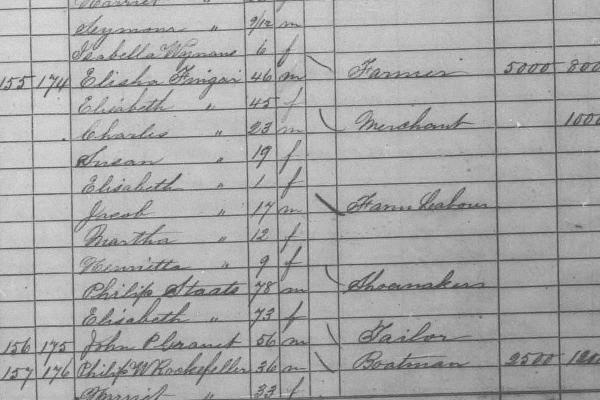 Harriet "
Seymour " 9/12 m
Isabella Wynans 6 f
155 174 Elisha Fingar 46 m Farmer 5000 800
Elisabeth " 45 f
Charles " 23 m Merchant 1000
Susan " 19 f
Elisabeth " 1 f
Jacob " 17 m Farm Labour
Martha " 12 f
Henrietta " 9 f
Philip Staats 78 m Shoemaker
Elisabeth " 73 f
156 175 John P 56 m Tailor
157 176 Philip W Rockefeller 36 m Boatman 2500
" 33 f